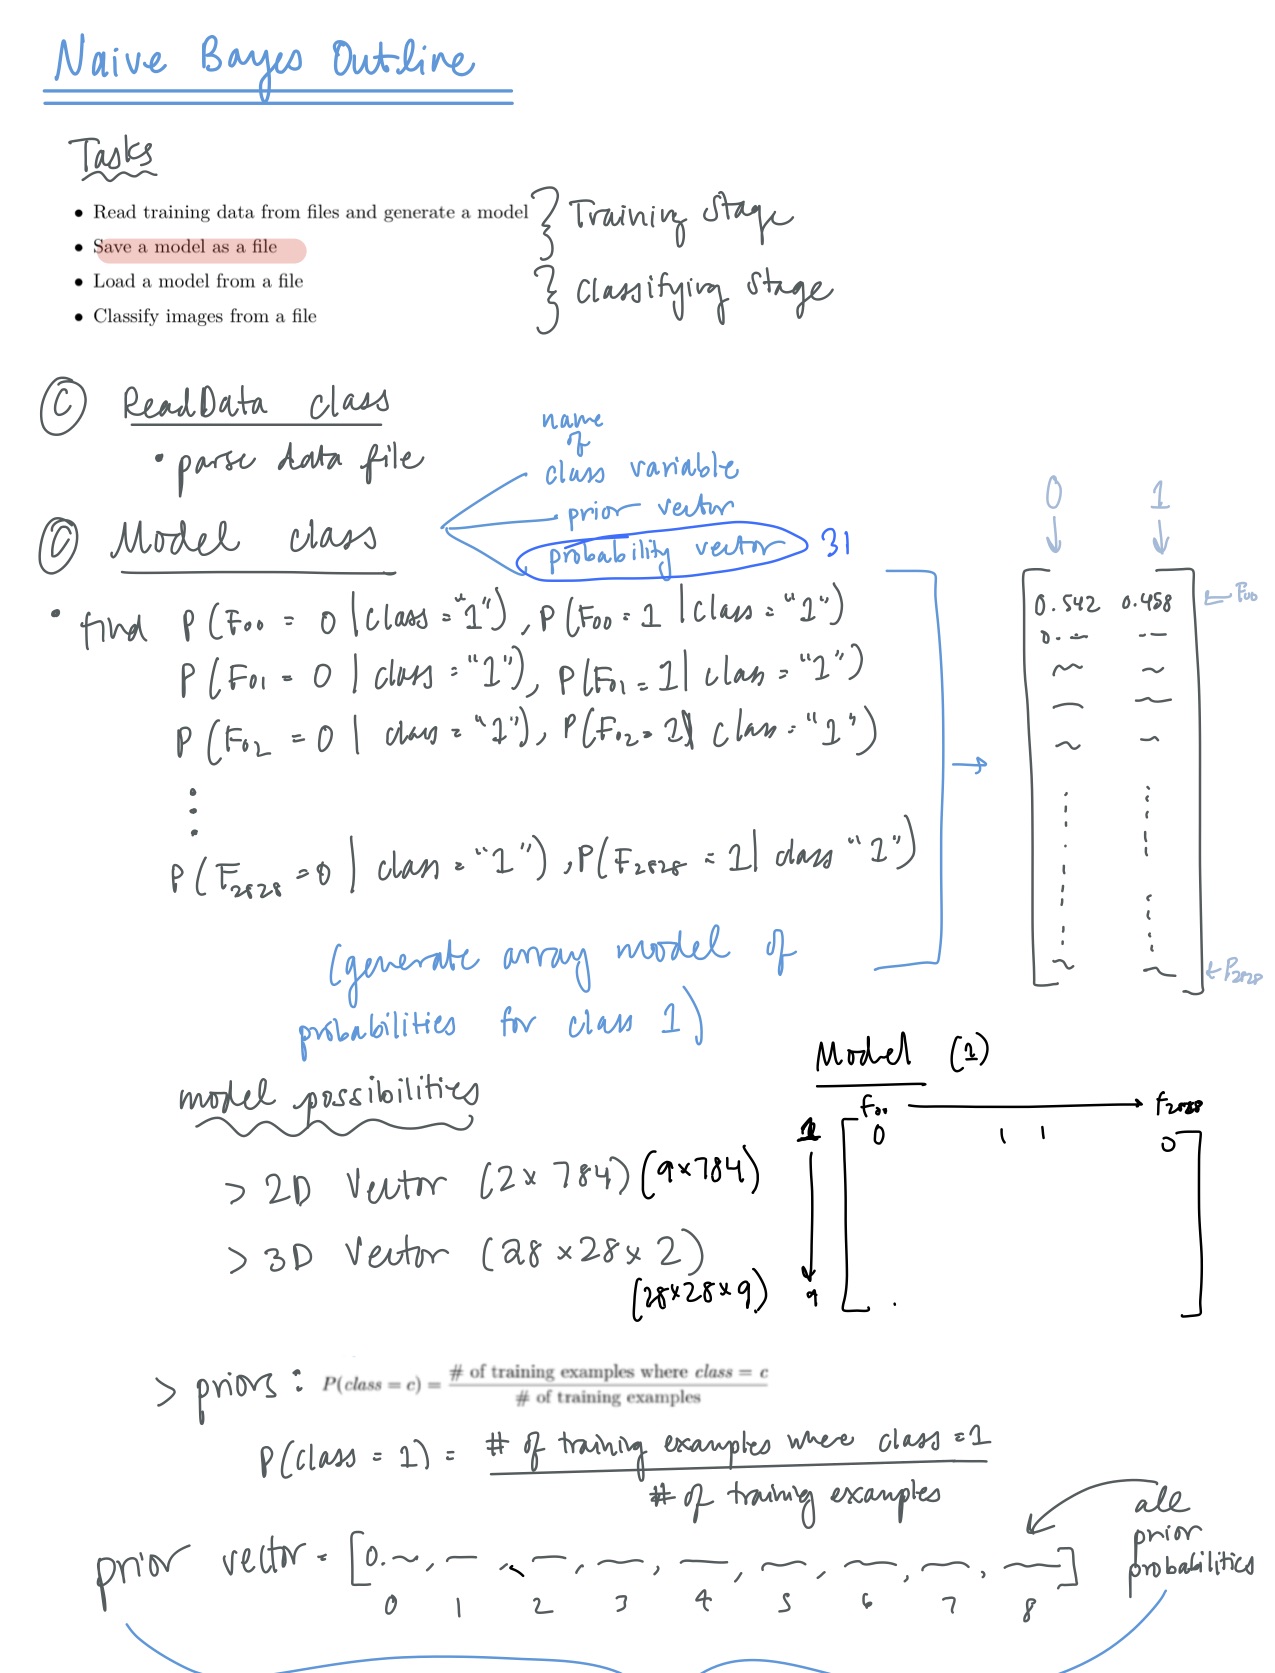 Naive Bayes Outline
Tasks
• Read training data from files and generate a model
• Save a model as a file
} Training Stage
• Load a model from a file
• Classify images from a file
} Classifying Stage
© ReadData class
• parse data file
© Model class
name
of
class variable
prior vector
probability vector 31
• find P(F00 = 0 | class = "1"), P(F00 = 1 | class = "1")
P(F01 = 0 | class = "1"), P(F01 = 1 | class = "1")
P(F02 = 0 | class = "1"), P(F02 = 1 | class = "1")
⋮
P(F2828 = 0 | class = "1"), P(F2828 = 1 | class "1")
(generate array model of
probabilities for class 1)
→
0 1
↓ ↓
0.542 0.458 ← F00
0.-- --
← F2828
model possibilities
> 2D Vector (2 x 784) (9x784)
> 3D Vector (28 x 28 x 2)
(28x28x9)
Model (1)
F00 → F2828
1 0 1 1 0
9
> priors: P(class = c) = # of training examples where class = c
# of training examples
P(class = 1) = # of training examples where class = 1
# of training examples
prior vector = [0.~, —, —, —, —, —, —, —, —]
0 1 2 3 4 5 6 7 8
all
prior
probabilities